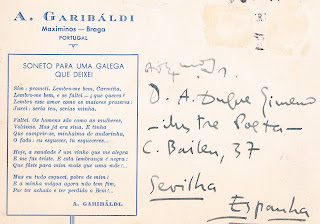 A. GARIBÁLDI
Maximinos — Braga
PORTUGAL
SONETO PARA UMA GALEGA
QUE DEIXEI
Sim: prometi. Lembro-me bem, Carmita,
Lembro-me bem, e se faltei — ¡que queres!
Lembro esse amor como os maiores prazeres:
Jurei: serás tu, serás minha.
Faltei. Os homens são como as mulheres,
Volúveis. Mas já era sina. E tinha
Que cumprir-se, minha de andorinha,
O fado: eu esquecer, tu esqueceres...
Hoje, a saudade é um vinho que me alegra
E me faz triste. E esta lembrança é negra:
Que flete para mim mais que uma mãe!...
Mas eu tudo esqueci, pobre de mim!
E a minha mágoa agora não tem fim,
Por ter achado e ter perdido o Bem!...
A. GARIBÁLDI.
D. A. Duque Gimeno
— ilustre Poeta —
C. Bailen, 37
Sevilha
Espanha